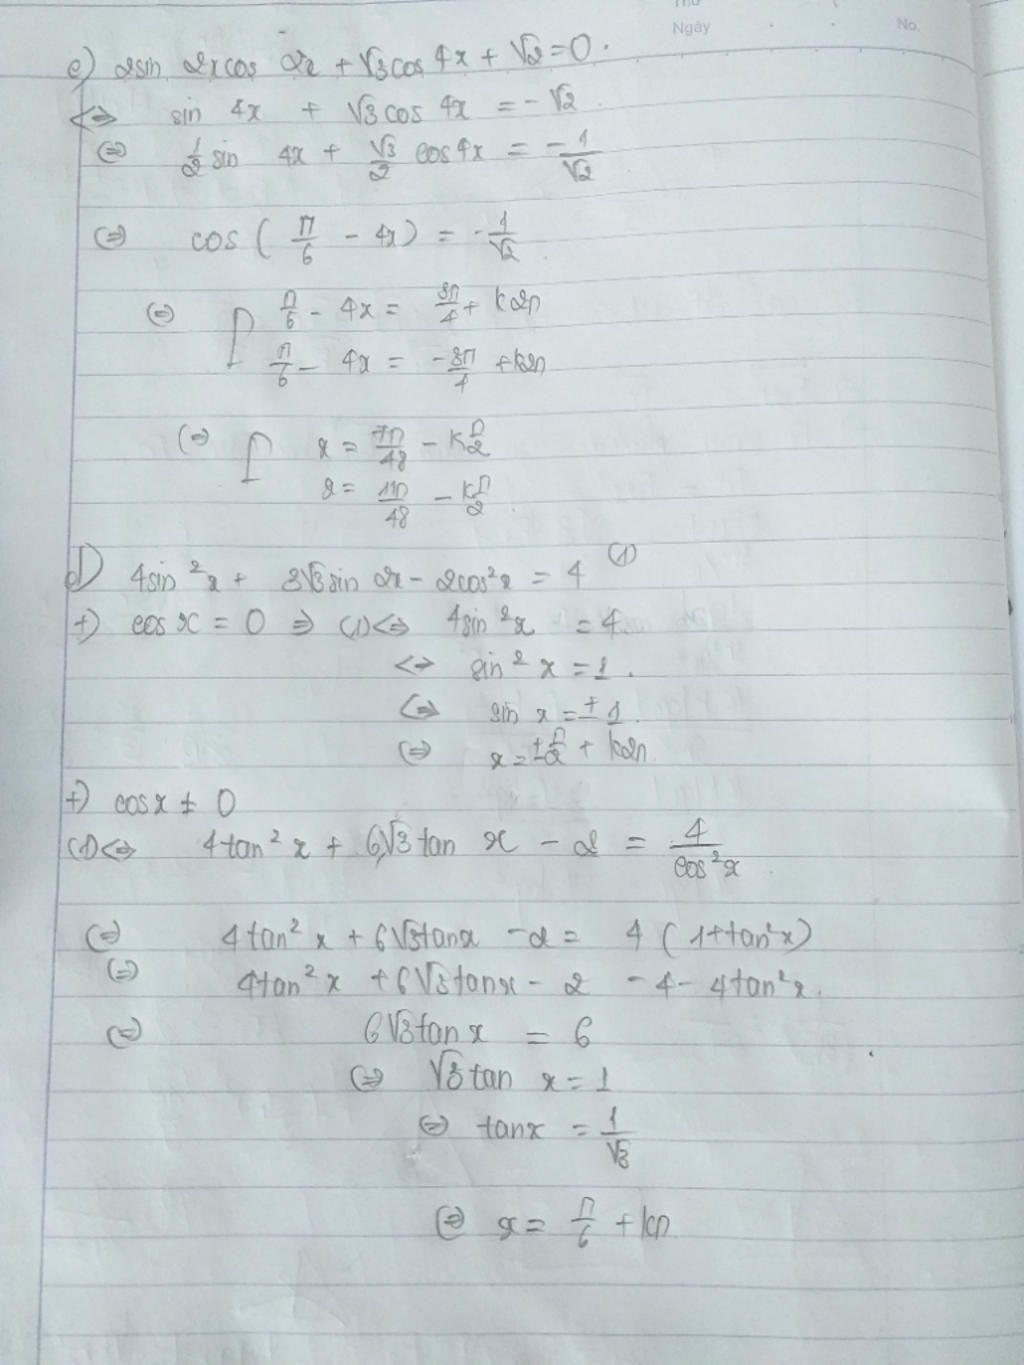 Thứ
Ngày
No.
c) 2sin 2xcos 2x + √3cos 4x + √2 = 0.
<=> sin 4x + √3 cos 4x = -√2.
(=) 1/2 sin 4x + √3/2 cos4x = -1/√2
(=) cos ( π/6 - 4x) = -1/√2
(=) [ π/6 - 4x = 3π/4 + k2π
π/6 - 4x = -3π/4 + k2π
(=) [ x = -7π/48 - kπ/2
x = 11π/48 - kπ/2
d) 4sin²x + 3√3sin 2x - 2cos²x = 4 (1)
+) cos x = 0 => (1) <=> 4sin²x = 4.
<=> sin²x = 1.
<=> sin x = ±1.
(=) x = ±π/2 + k2π
+) cosx ≠ 0
(1) <=> 4tan²x + 6√3 tan x - 2 = 4/cos²x
(=) 4tan²x + 6√3tanx - 2 = 4 (1+tan²x)
(=) 4tan²x + 6√3tanx - 2 - 4 - 4tan²x.
(=) 6√3tan x = 6
(=) √3 tan x = 1
(=) tanx = 1/√3
(=) x = π/6 + kπ